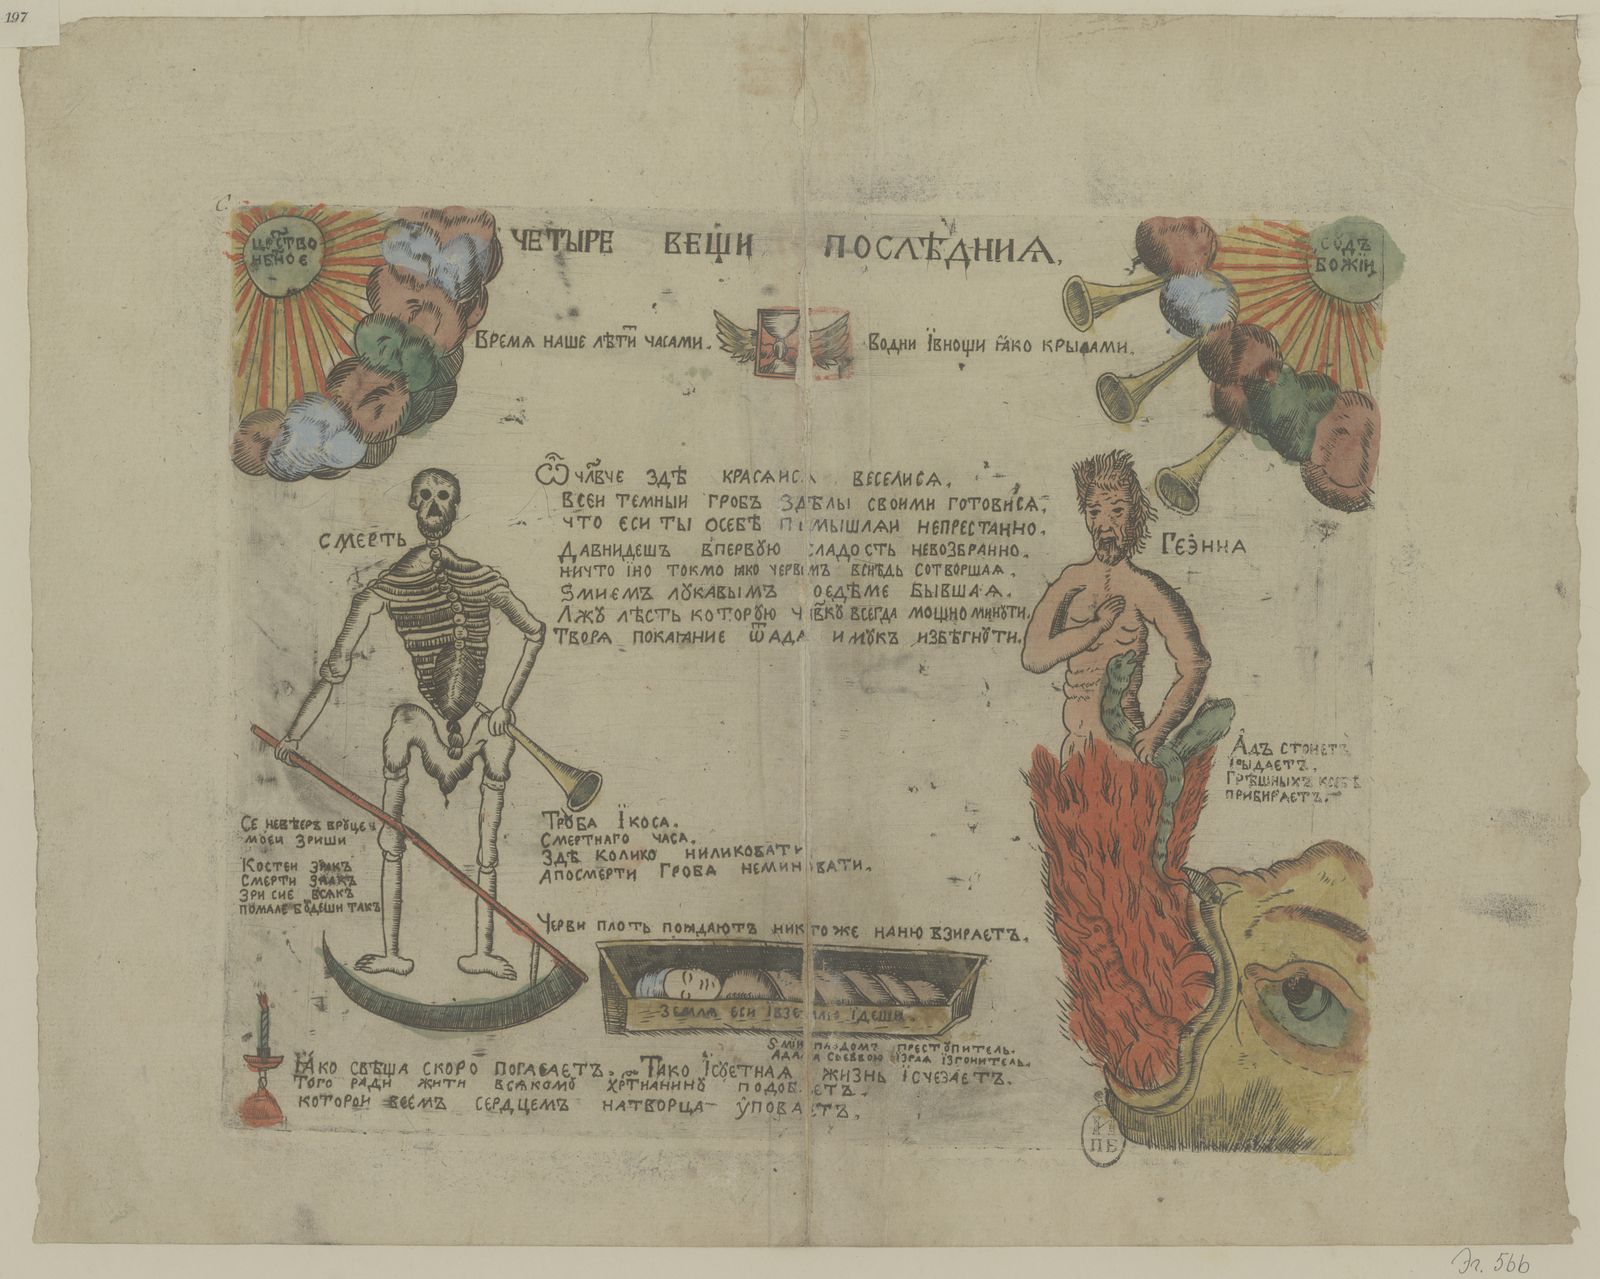 197
С.
ЦРСТВО
НБНОЕ
ЧЕТЫРЕ ВЕЩИ ПОСЛѢДНИѦ.
СꙊДЪ
БОЖІИ
ВРЕМЯ НАШЕ ЛѢТИТ ЧАСАМИ.
ВОДНИ ЇВНОЩИ ꙖКО КРЫЛАМИ.
Ѽ ЧЛВЧЕ ЗДѢ КРАСѦИСѦ ВЕСЕЛИСѦ.
ВСЕИ ТЕМНЫИ ГРОБЪ ЗДѢЛЫ СВОИМИ ГОТОВИСѦ,
ЧТО ЄСИ ТЫ ОСЕБѢ ПОМЫШЛѦИ НЕПРЕСТАННО.
ДАВНИДЕШЪ ВПЕРВꙊЮ СЛАДОСТЬ НЕВОЗБРАННО.
НИЧТО ЇНО ТОКМО ꙖКО ЧЕРВЕМЪ ВСНѢДЬ СОТВОРШАѦ.
ЅМИЕМЪ ЛꙊКАВЫМЪ ОЕДЕМЕ БЫВШАѦ.
ЛЖꙊ ЛѢСТЬ КОТОРꙊЮ ЧЛВКꙊ ВСЕГДА МОЩНО МИНꙊТИ.
ТВОРѦ ПОКАꙖНИЕ ѾАДА ИМꙊКЪ ИЗБѢГНꙊТИ.
СМЕРТЬ
ГЕЭННА
АДЪ СТОНЕТЪ
ЇРЫДАЕТЪ.
ГРѢШНЫХЪ КСЕБѢ
ПРИБИРАЕТЪ.
СЕ НЕВѢЕРЪ ВРꙊЦЕ
МОЕИ ЗРИШИ
КОСТЕИ ЗРАКЪ
СМЕРТИ ЗНАКЪ
ЗРИ СИЕ ВСѦКЪ
ПОМАЛЕ БꙊДЕШИ ТАКЪ
ТРꙊБА ЇКОСА.
СМЕРТНАГО ЧАСА.
ЗДѢ КОЛИКО НИЛИКОВАТИ
АПОСМЕРТИ ГРОБА НЕМИНОВАТИ.
ЧЕРВИ ПЛОТЬ ПОꙖДАЮТЪ НИКТОЖЕ НАНЮ ВЗИРАЕТЪ.
ЗЕМЛѦ ЕСИ ЇВЗЕМЛЮ ЇДЕШИ.
ЅМИИ ПРЕСТꙊПИТЕЛЬ.
АДАМА СЪЕВВОЮ ЇЗРАѦ ЇЗГОНИТЕЛЬ.
ꙖКО СВѢЩА СКОРО ПОГАСАЕТЪ. ТАКО ЇСꙊЕТНАѦ ЖИЗНЬ ЇСЧЕЗАЕТЪ.
ТОГО РАДИ ЖИТИ ВСѦКОМꙊ ХРТИАНИНꙊ ПОДОБАЕТЪ.
КОТОРОИ ВСЕМЪ СЕРДЦЕМЪ НАТВОРЦА ꙊПОВАЕТЪ.
ПЕ
Эл. 566